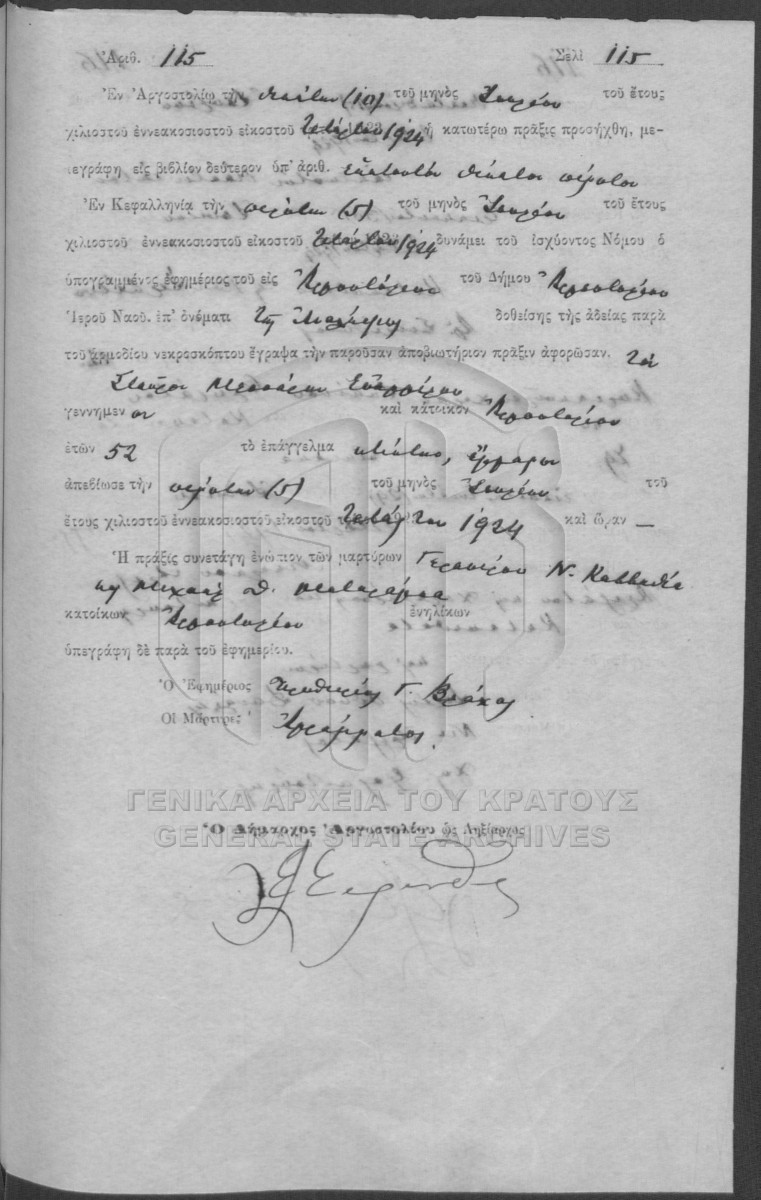 Ἀριθ. 115 Σελὶ 115
Ἐν Ἀργοστολίῳ τῇν δεκάτην (10) τοῦ μηνὸς Ἰουλίου τοῦ ἔτους
χιλιοστοῦ ἐννεακοσιοστοῦ εἰκοστοῦ τετάρτου 1924 ἡ κατωτέρω πρᾶξις προσήχθη, με-
τεγράφη εἰς βιβλίον δεύτερον ὑπ' ἀριθ. ἑκατοστὸν δέκατον πέμπτον
Ἐν Κεφαλληνίᾳ τὴν πέμπτην (5) τοῦ μηνὸς Ἰουλίου τοῦ ἔτους
χιλιοστοῦ ἐννεακοσιοστοῦ εἰκοστοῦ τετάρτου 1924 δυνάμει τοῦ ἰσχύοντος Νόμου ὁ
ὑπογραμμένος ἐφημέριος τοῦ εἰς Ἀργοστόλιον τοῦ Δήμου Ἀργοστολίου
Ἱεροῦ Ναοῦ. ἐπ' ὀνόματι τῆς δοθείσης τῆς ἀδείας παρὰ
τοῦ ἁρμοδίου νεκροσκόπτου ἔγραψα τὴν παροῦσαν ἀποβιωτήριον πρᾶξιν ἀφορῶσαν. τὸν
Σταῦρον
γεννημεν ον καὶ κάτοικον Ἀργοστολίου
ἐτῶν 52 τὸ ἐπάγγελμα κτίστην, ἔγγαμον
ἀπεβίωσε τὴν πέμπτην (5) τοῦ μηνὸς Ἰουλίου τοῦ
ἔτους χιλιοστοῦ ἐννεακοσιοστοῦ εἰκοστοῦ τετάρτου 1924 καὶ ὥραν —
Ἡ πρᾶξις συνετάγη ἐνώπιον τῶν μαρτύρων Γερασίμου Ν. Καββαδία
κατοίκων Ἀργοστολίου ἐνηλίκων
ὑπεγράφη δὲ παρὰ τοῦ ἐφημερίου.
Ὁ Ἐφημέριος Γ.
Οἱ Μάρτυρες Ἀγράμματος.
ΓΕΝΙΚΑ ΑΡΧΕΙΑ ΤΟΥ ΚΡΑΤΟΥΣ
Ὁ Δήμαρχος Ἀργοστολίου ὡς Ληξίαρχος
GENERAL STATE ARCHIVES